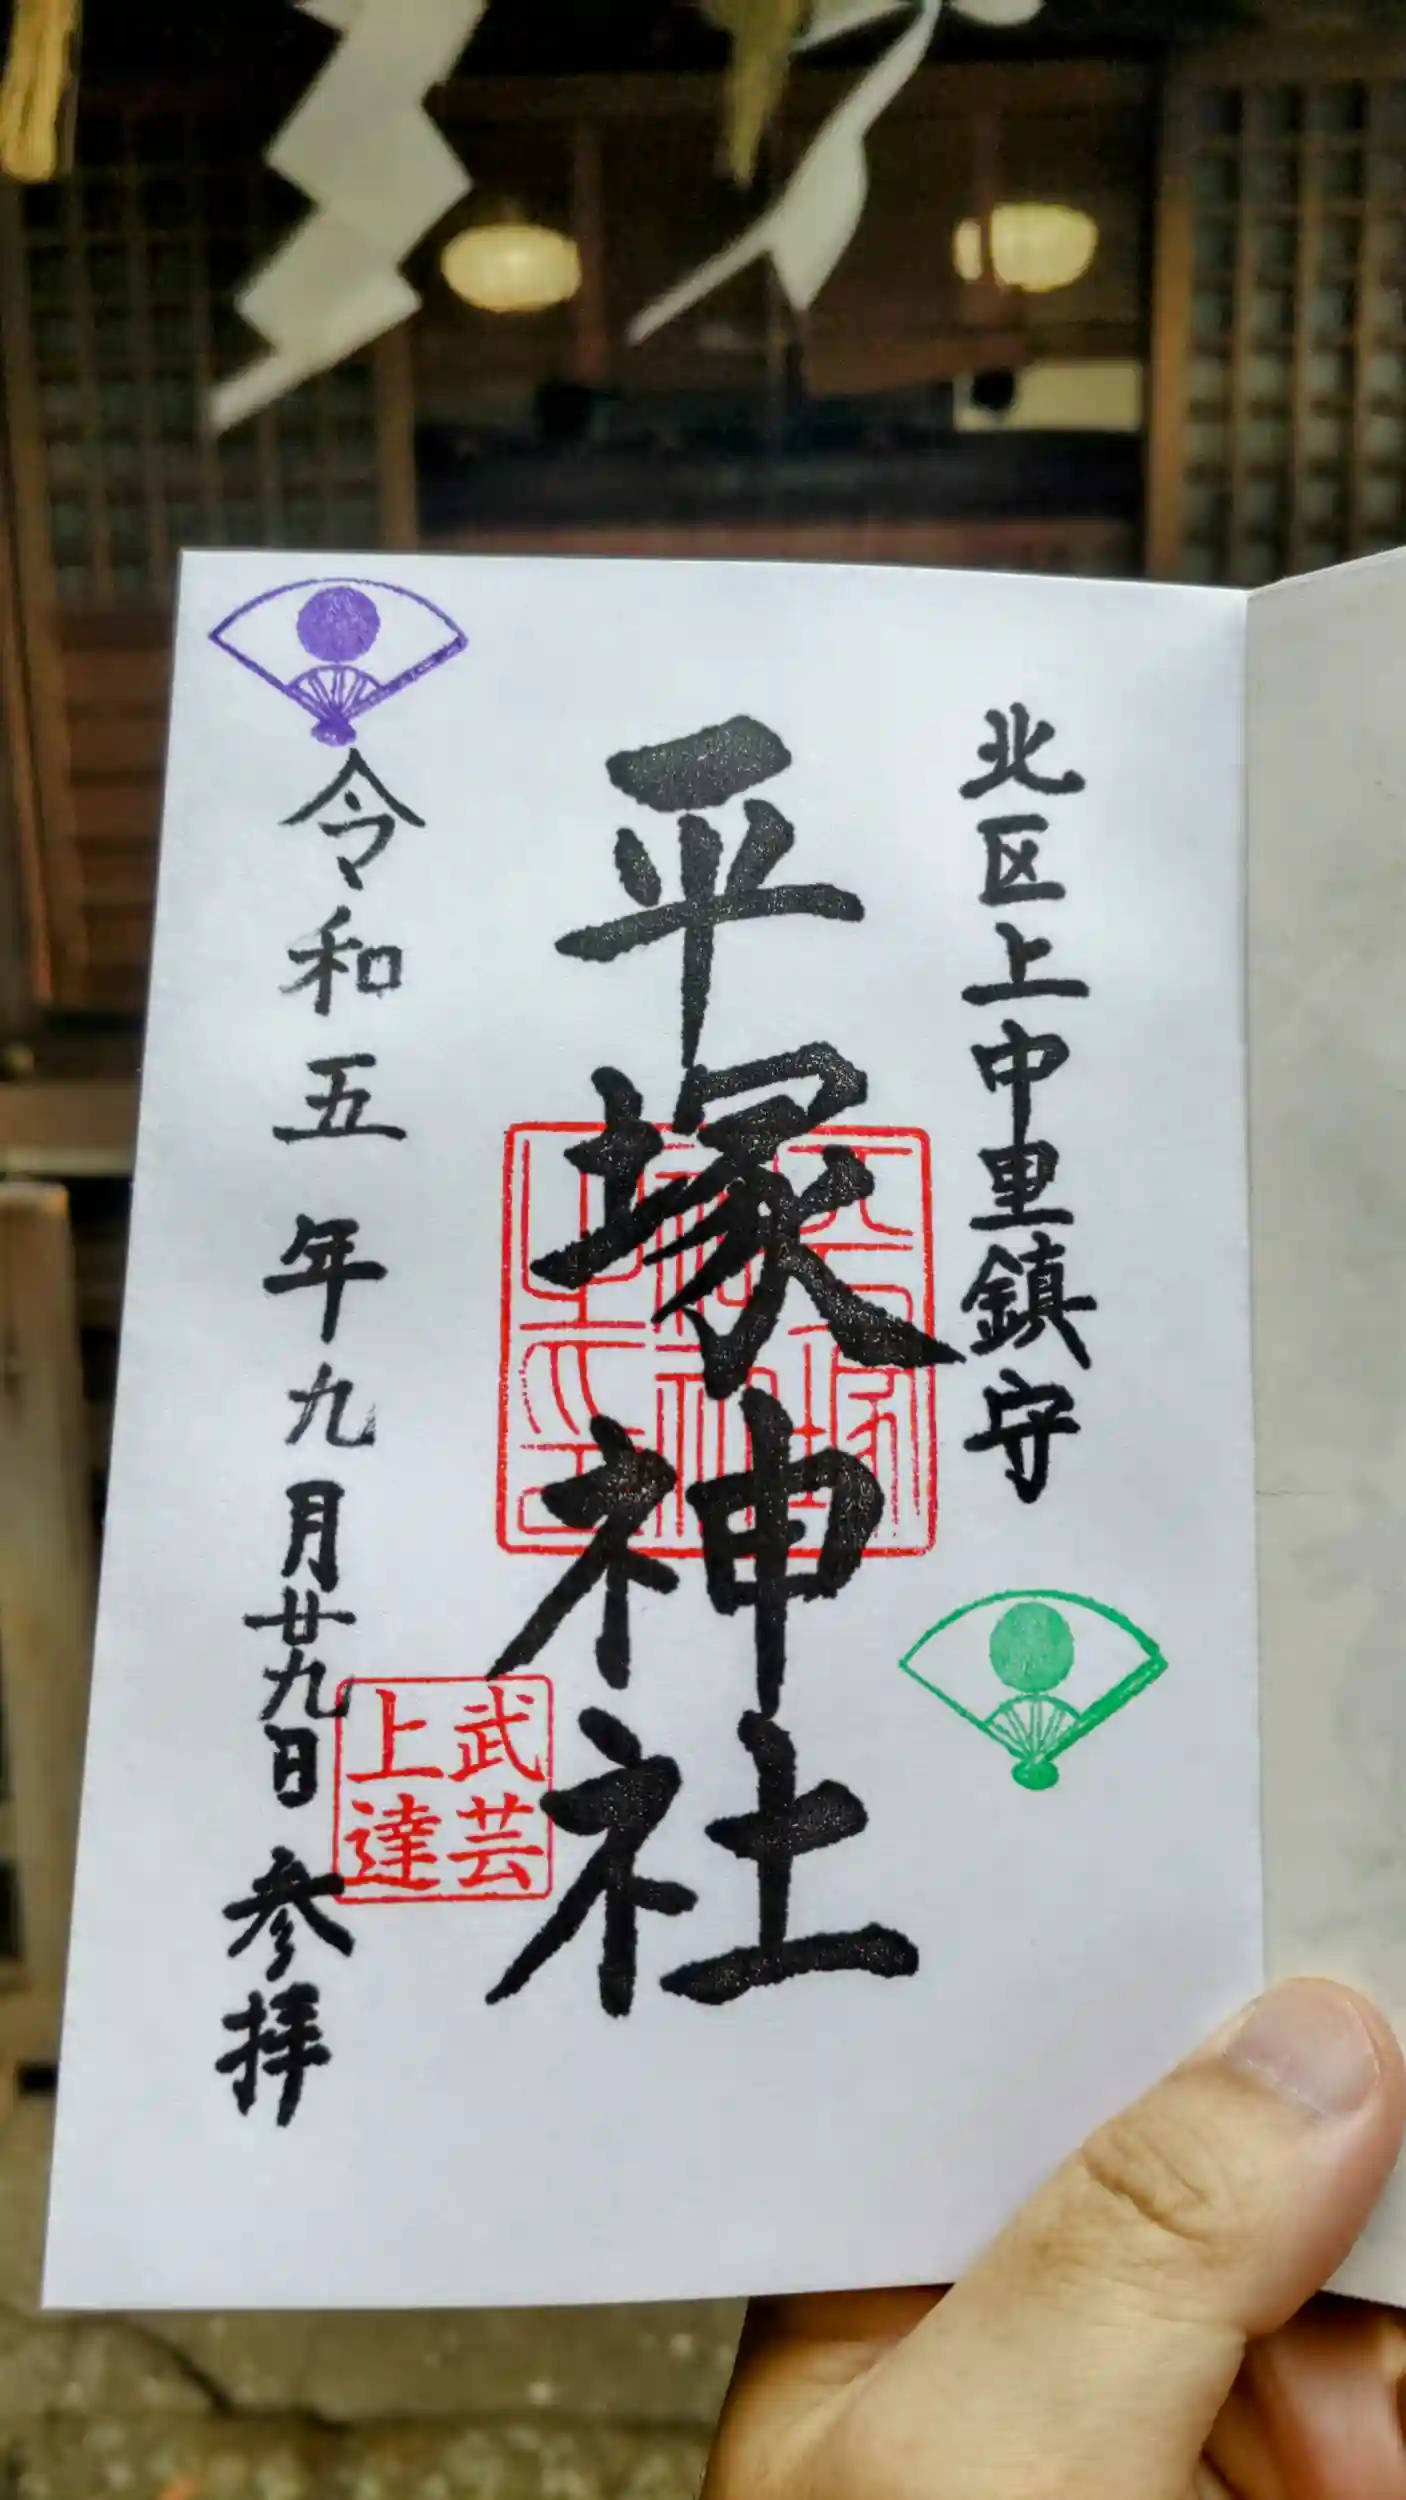 北区上中里鎮守
平塚神社
平塚神社之印
武芸
上達
令和五年九月廿九日 参拝